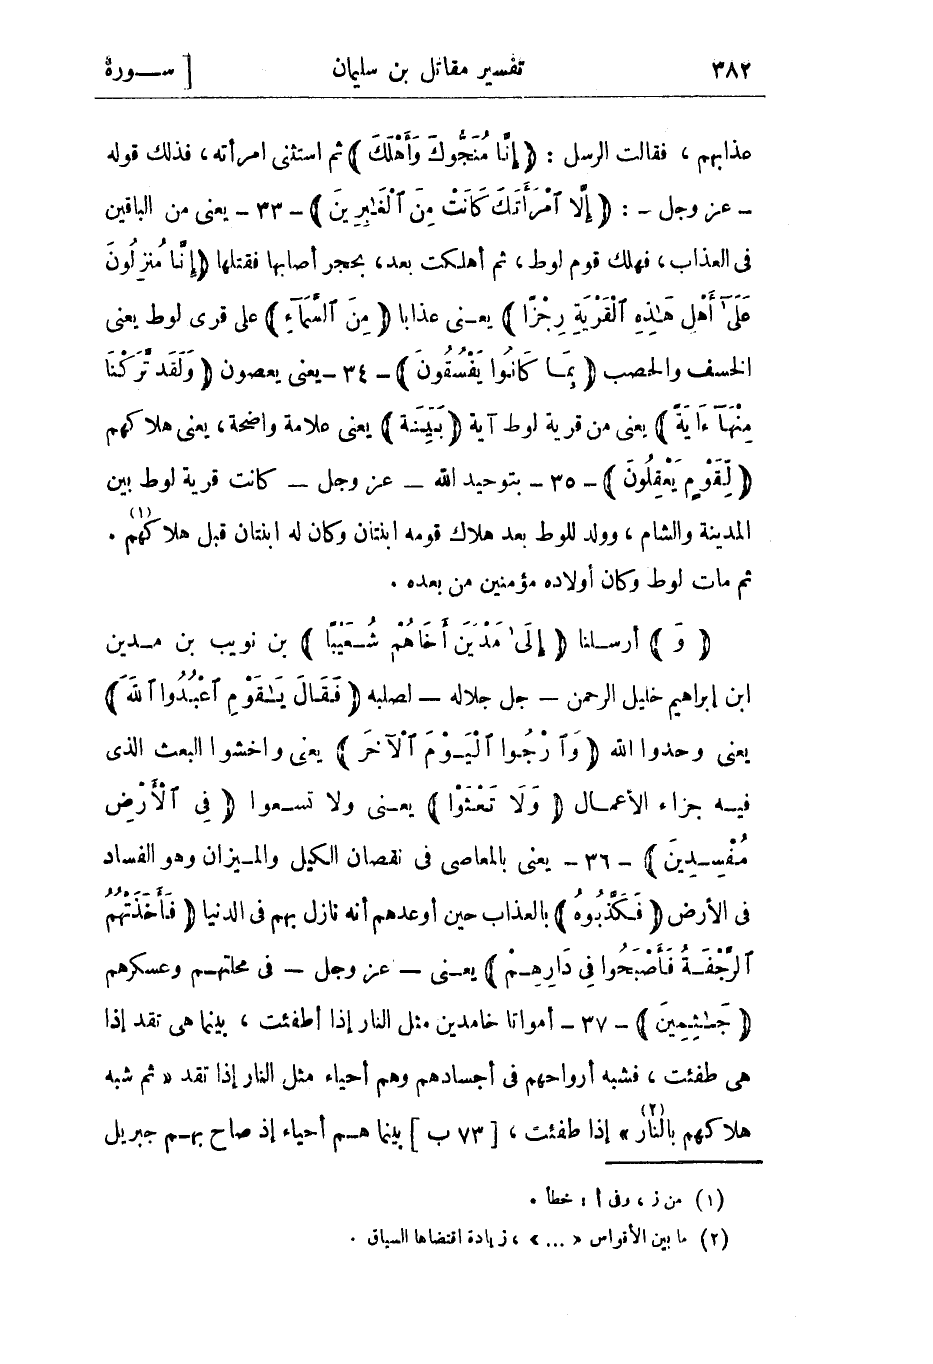 ٣٨٢ تفسير مقاتل بن سليمان [ ســورة
عذابهم ، فقالت الرسل : ﴿ إِنَّا مُنَجُّوكَ وَأَهْلَكَ ﴾ ثم استثنى امرأته ، فذلك قوله
ـ عز وجل ـ : ﴿ إِلَّا ٱمْرَأَتَكَ كَانَتْ مِنَ ٱلْغَـٰبِرِينَ ﴾ ـ ٣٣ ـ يعنى من الباقين
فى العذاب ، فهلك قوم لوط ، ثم أهلكت بعد ، بحجر أصابها فقتلها ﴿ إِنَّا مُنزِلُونَ
عَلَىٰٓ أَهْلِ هَـٰذِهِ ٱلْقَرْيَةِ رِجْزًا ﴾ يعـنى عذابا ﴿ مِنَ ٱلسَّمَآءِ ﴾ على قرى لوط يعنى
الخسف والحصب ﴿ بِمَـا كَانُوا يَفْسُقُونَ ﴾ ـ ٣٤ ـ يعنى يعصون ﴿ وَلَقَد تَّرَكْنَا
مِنْهَآ ءَايَةً ﴾ يعنى من قرية لوط آية ﴿ بَيِّنَـة ﴾ يعنى علامة واضحة ، يعنى هلاكهم
﴿ لِّقَوْمٍ يَعْقِلُونَ ﴾ ـ ٣٥ ـ بتوحيد الله ـ عز وجل ـ كانت قرية لوط بين
المدينة والشام ، وولد للوط بعد هلاك قومه ابنتان وكان له ابنتان قبل هلاكهم (١) .
ثم مات لوط وكان أولاده مؤمنين من بعده .
﴿ وَ ﴾ أرسـلنا ﴿ إِلَىٰ مَدْيَنَ أَخَاهُمْ شُـعَيْبًا ﴾ بن نويب بن مـدين
ابن إبراهيم خليل الرحمن ـ جل جلاله ـ لصلبه ﴿ فَقَالَ يَـٰقَوْمِ ٱعْبُدُوا ٱللَّهَ ﴾
يعنى وحدوا الله ﴿ وَٱرْجُوا ٱلْيَـوْمَ ٱلْآخِرَ ﴾ يعنى واخشوا البعث الذى
فيـه جزاء الأعمـال ﴿ وَلَا تَعْثَوْا ﴾ يعـنى ولا تسـعوا ﴿ فِى ٱلْأَرْضِ
مُفْسِـدِينَ ﴾ ـ ٣٦ ـ يعنى بالمعاصى فى نقصان الكيل والمـيزان وهو الفساد
فى الأرض ﴿ فَكَذَّبُوهُ ﴾ بالعذاب حين أوعدهم أنه نازل بهم فى الدنيا ﴿ فَأَخَذَتْهُمُ
ٱلرَّجْفَـةُ فَأَصْبَحُوا فِى دَارِهِـمْ ﴾ يعـنى ـ عز وجل ـ فى محلتهـم وعسكرهم
﴿ جَـٰثِمِينَ ﴾ ـ ٣٧ ـ أمواتا خامدين مثل النار إذا أطفئت ، بينما هى تقد إذا
هى طفئت ، فشبه أرواحهم فى أجسادهم وهم أحياء مثل النار إذا تقد « ثم شبه
هلاكهم بالنار (٢) » إذا طفئت ، [ ٧٣ ب ] بينما هـم أحياء إذ صاح بهـم جبريل
(١) من ز ، وفى أ : خطأ .
(٢) ما بين الأقواس « ... » ، زيادة اقتضاها السياق .